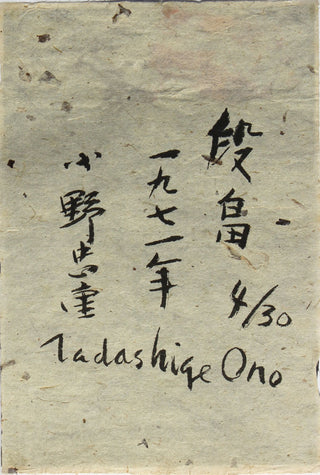 段畠
4/30
一九七一年
小野忠重
Tadashige Ono